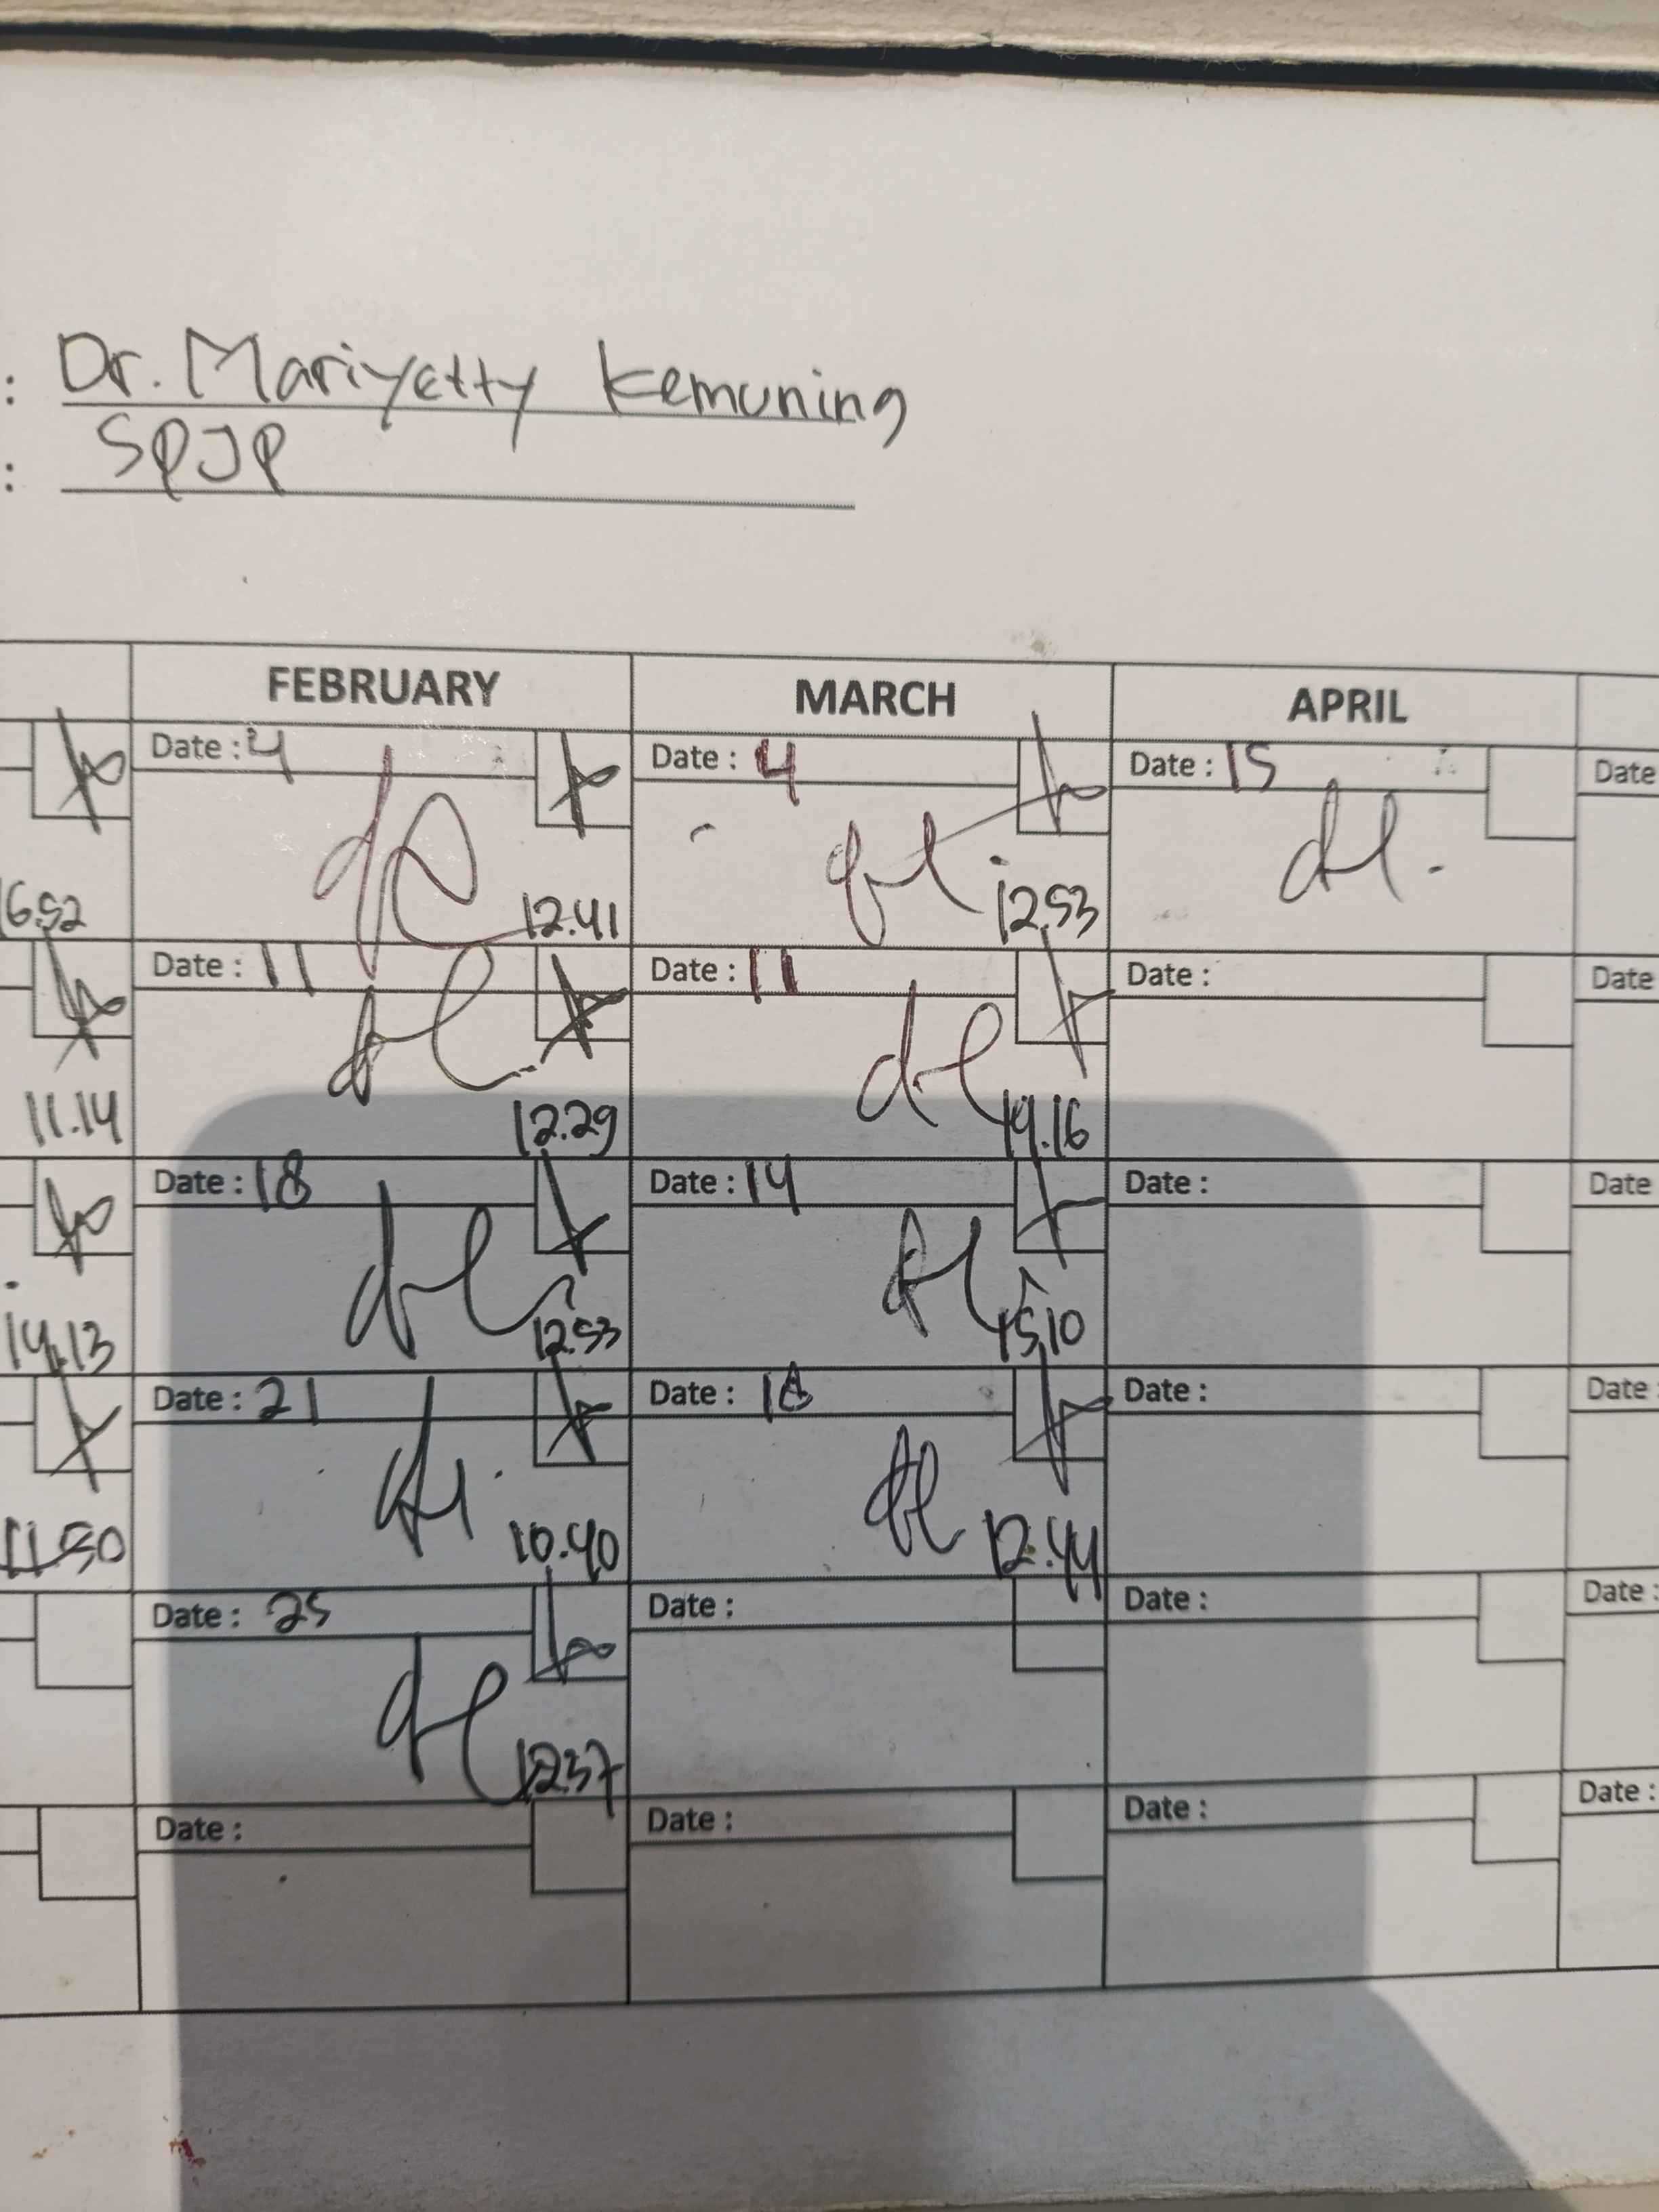 : Dr. Mariyetty Kemuning
: SPJP
FEBRUARY MARCH APRIL
Date : 4 Date : 4 Date : 15 Date
12.41 12.53
Date : 11 Date : 11 Date : Date
11.14 12.29 14.16
Date : 18 Date : 14 Date : Date
14.13 12.53 15.10
Date : 21 Date : 18 Date : Date :
11.50 10.40 12.44
Date : 25 Date : Date : Date :
12.57
Date : Date : Date : Date :